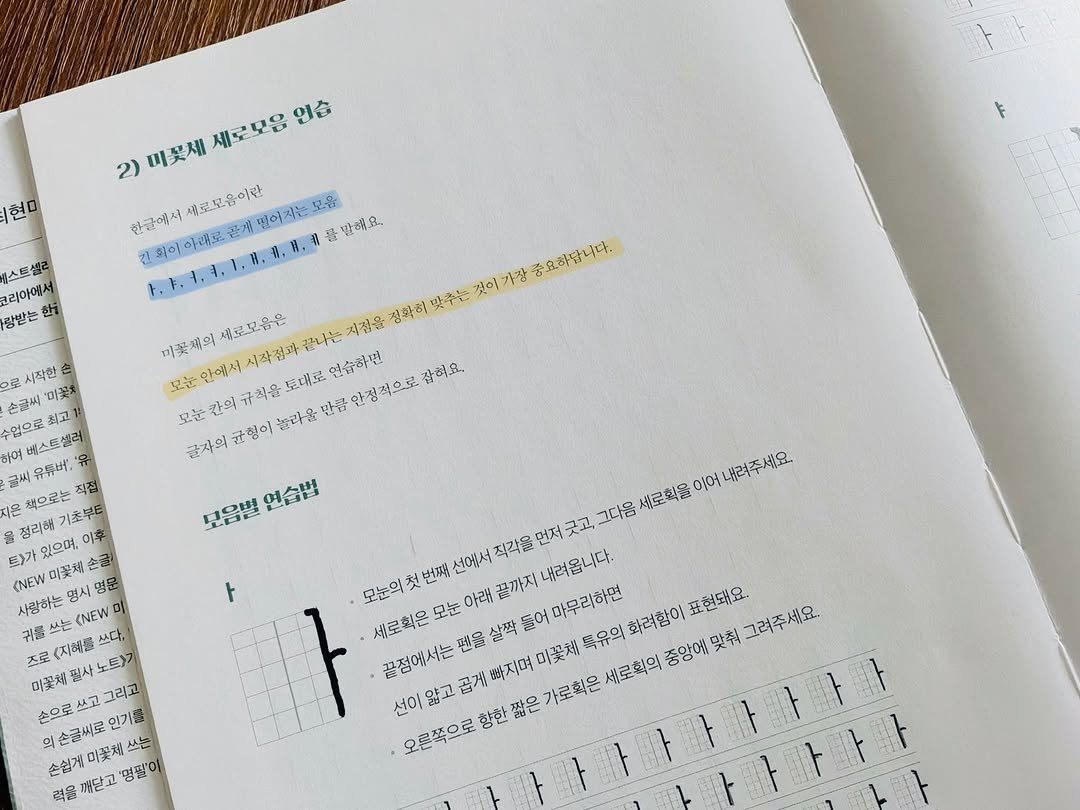 2) 미꽃체 세로모음 연습
한글에서 세로모음이란
긴 획이 아래로 곧게 떨어지는 모음
ㅏ, ㅑ, ㅓ, ㅕ, ㅣ, ㅐ, ㅔ, ㅒ, ㅖ 를 말해요.
미꽃체의 세로모음은
모눈 안에서 시작점과 끝나는 지점을 정확히 맞추는 것이 가장 중요하답니다.
모눈 칸의 규칙을 토대로 연습하면
글자의 균형이 놀라울 만큼 안정적으로 잡혀요.
모음별 연습법
ㅏ
모눈의 첫 번째 선에서 직각을 먼저 긋고, 그다음 세로획을 이어 내려주세요.
세로획은 모눈 아래 끝까지 내려옵니다.
끝점에서는 펜을 살짝 들어 마무리하면
선이 얇고 곱게 빠지며 미꽃체 특유의 화려함이 표현돼요.
오른쪽으로 향한 짧은 가로획은 세로획의 중앙에 맞춰 그려주세요.
베스트셀러
코리아에서
사랑받는 한글
으로 시작한 손
손글씨 '미꽃체
수업으로 최고
하여 베스트셀러
글씨 유튜버', '유
지은 책으로는 직접
을 정리해 기초부터
트》가 있으며, 이후
《NEW 미꽃체 손글
사랑하는 명시 명문
귀를 쓰는 《NEW 미
즈로 《지혜를 쓰다,
미꽃체 필사 노트》가
손으로 쓰고 그리고
의 손글씨로 인기를
손쉽게 미꽃체 쓰는
력을 깨닫고 '명필'이
ㅑ